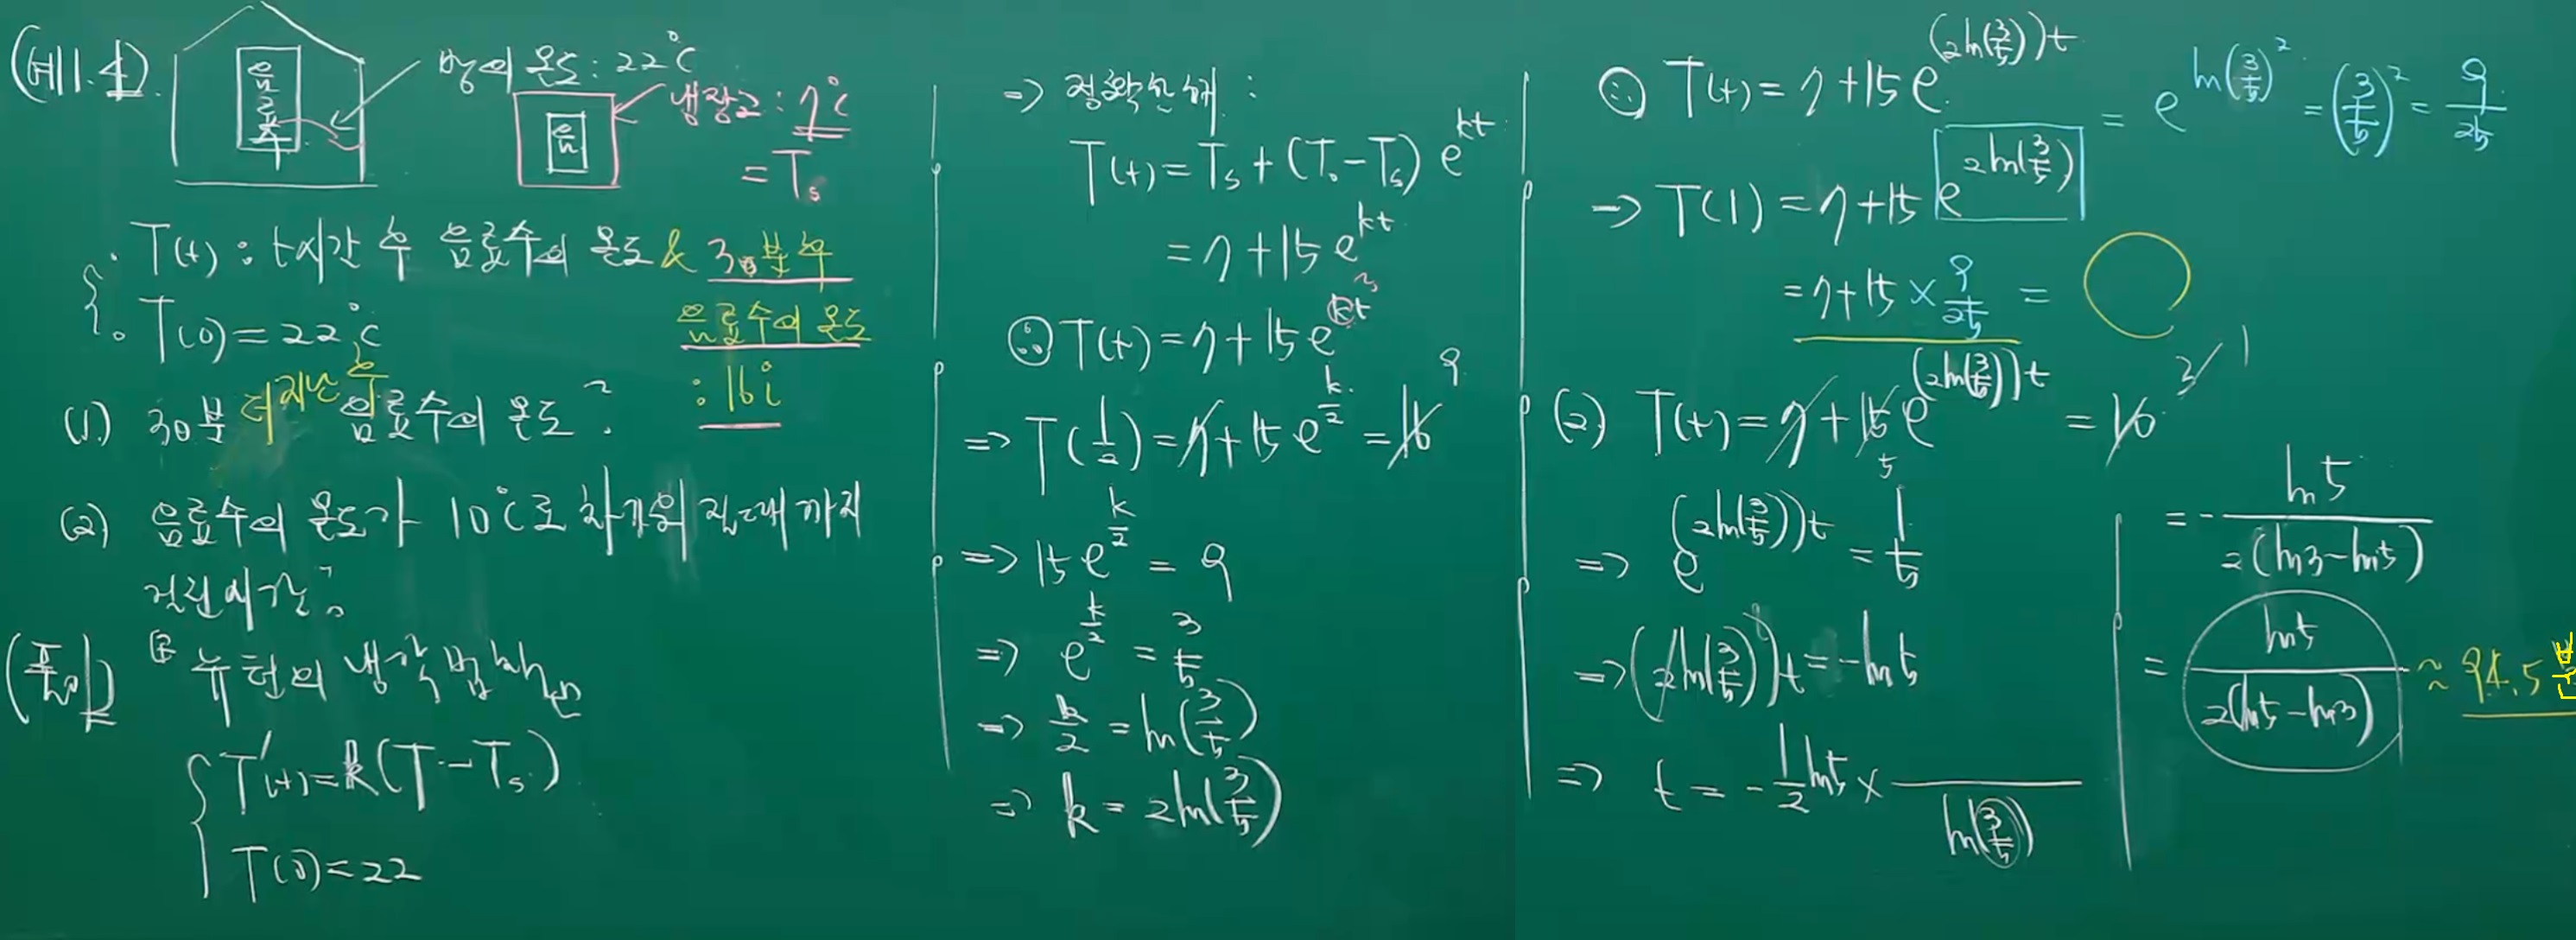 (예1.4)
음료수
방의 온도 : 22°C
음
냉장고 : 7°C
= T_s
T(t) : t시간 후 음료수의 온도 & 30분 후
음료수의 온도
: 16°C
T(0) = 22°C
(1) 30분 더 지난 후 음료수의 온도?
(2) 음료수의 온도가 10°C로 차가워질 때까지
걸린 시간?
(풀이) 뉴턴의 냉각법칙
T'(t) = k(T - T_s)
T(0) = 22
⇒ 정확한 해 :
T(t) = T_s + (T_0 - T_s) e^{kt}
= 7 + 15 e^{kt}
∴ T(t) = 7 + 15 e^{kt}
⇒ T(1/2) = 7 + 15 e^{k/2} = 16 9
⇒ 15 e^{k/2} = 9
⇒ e^{k/2} = 3/5
⇒ k/2 = ln(3/5)
⇒ k = 2ln(3/5)
∴ T(t) = 7 + 15 e^{(2ln(3/5))t}
→ T(1) = 7 + 15 e^{2ln(3/5)} = e^{ln(3/5)^2} = (3/5)^2 = 9/25
= 7 + 15 × 9/25 =
(2) T(t) = 7 + 15 e^{(2ln(3/5))t} = 10 3 1
5
⇒ e^{(2ln(3/5))t} = 1/5
⇒ (2ln(3/5))t = -ln5
⇒ t = -1/2 ln5 × 1/ln(3/5)
= - ln5 / 2(ln3 - ln5)
= ln5 / 2(ln5 - ln3) ≈ 94.5분